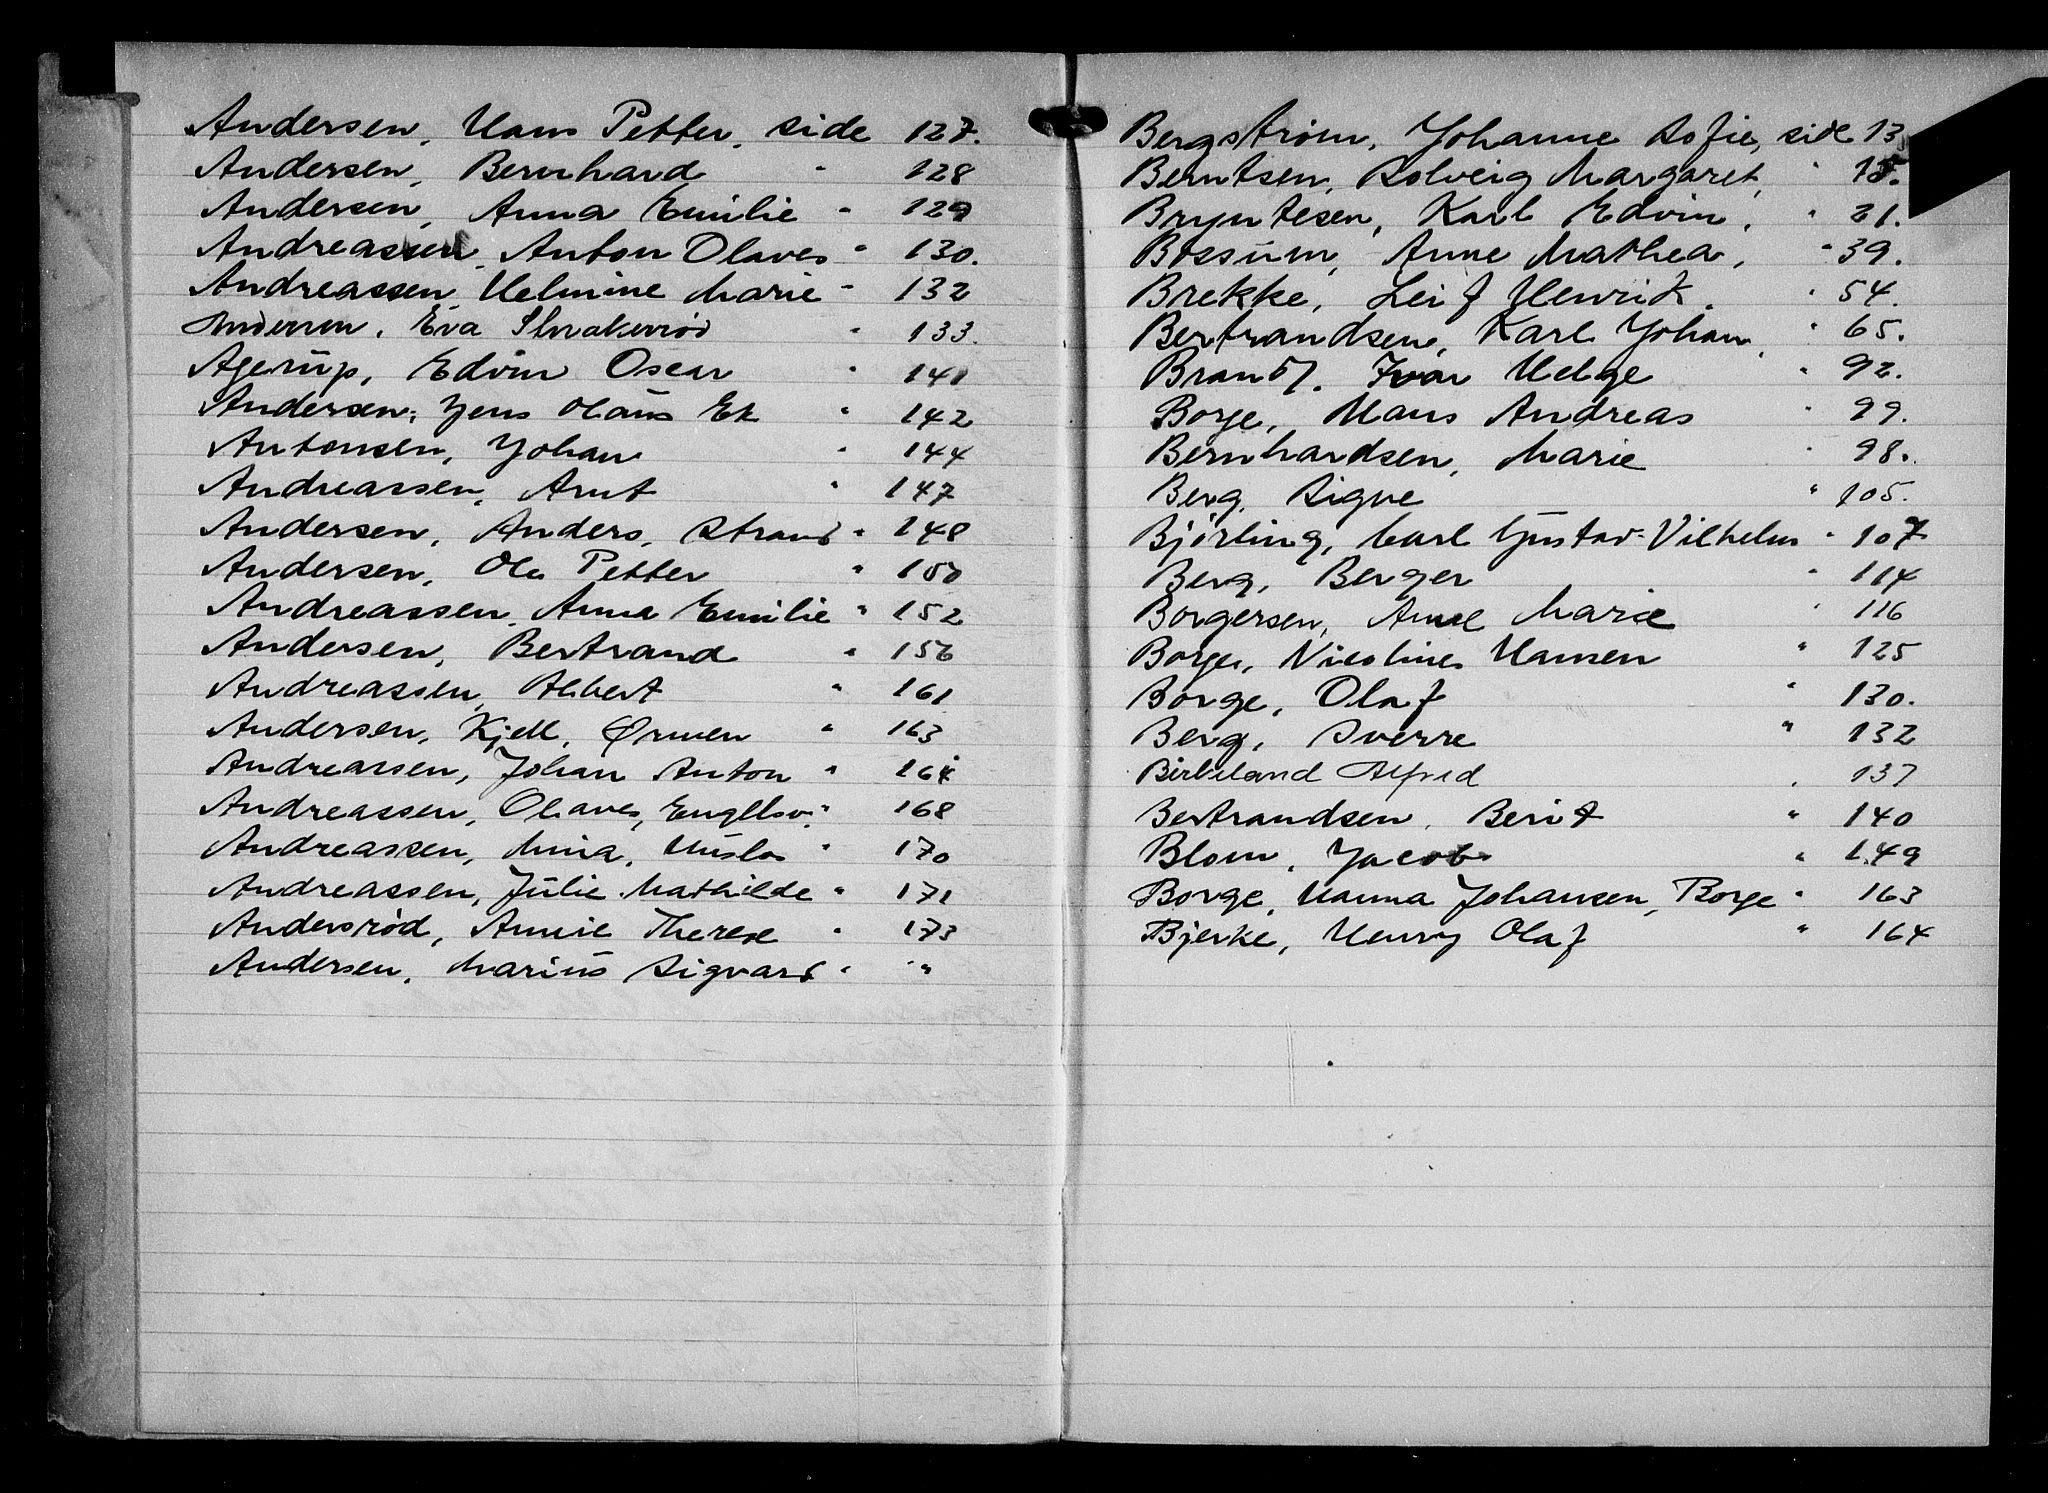 Andersen, Hans Petter, side 127.
Andersen, Bernhard " 128
Andersen, Anna Emilie " 129
Andreassen, Anton Olaves " 130.
Andreassen, Helmine Marie " 132
Andersen, Eva " 133.
Agerup, Edvin Oscar " 141
Andersen, Jens Olaus Ek " 142
Antonsen, Johan " 144
Andreassen, Arnt " 147
Andersen, Anders, Strand " 148
Andersen, Ole Petter " 150
Andreassen, Anna Emilie " 152
Andersen, Bertrand " 156
Andreassen, Albert " 161
Andersen, Kjell, Ørmen " 163
Andreassen, Johan Anton " 164
Andreassen, Olaves, " 168
Andreassen, Mina, " 170
Andreassen, Julie Mathilde " 171
Andersrød, Annie Therese " 173
Andersen, Marius Sigvard " "
Bergstrøm, Johanne Sofie, side 13
Berntsen, Solveig Margaret, " 18.
Bryntesen, Karl Edvin, " 21.
Bossum, Anne Mathea, " 39.
Brekke, Leif Henrik, " 54.
Bertrandsen, Karl Johan, " 65.
Brandt, Ivar Helge " 92.
Borge, Hans Andreas " 99.
Bernhardsen, Marie " 98.
Berg, Signe " 105.
Bjørling, Carl Gustav Vilhelm " 107
Berg, Berger " 114
Borgersen, Anne Marie " 116
Borge, Nicoline Hansen " 125
Borge, Olaf " 130.
Berg, Sverre " 132
Birkeland Alfred " 137
Bertrandsen, Berit " 140
Blom, Jacob " 149
Borge, Hanna Johansen, Borge " 163
Bjerke, Henry Olaf " 164